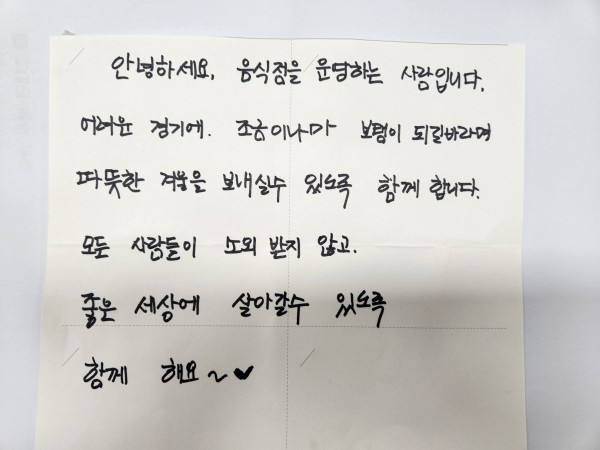 안녕하세요, 음식점을 운영하는 사람입니다.
어려운 경기에. 조금이나마 보탬이 되길바라며
따뜻한 겨울을 보내실수 있도록 함께 합니다.
모든 사람들이 소외 받지 않고.
좋은 세상에 살아갈수 있도록
함께 해요~♥